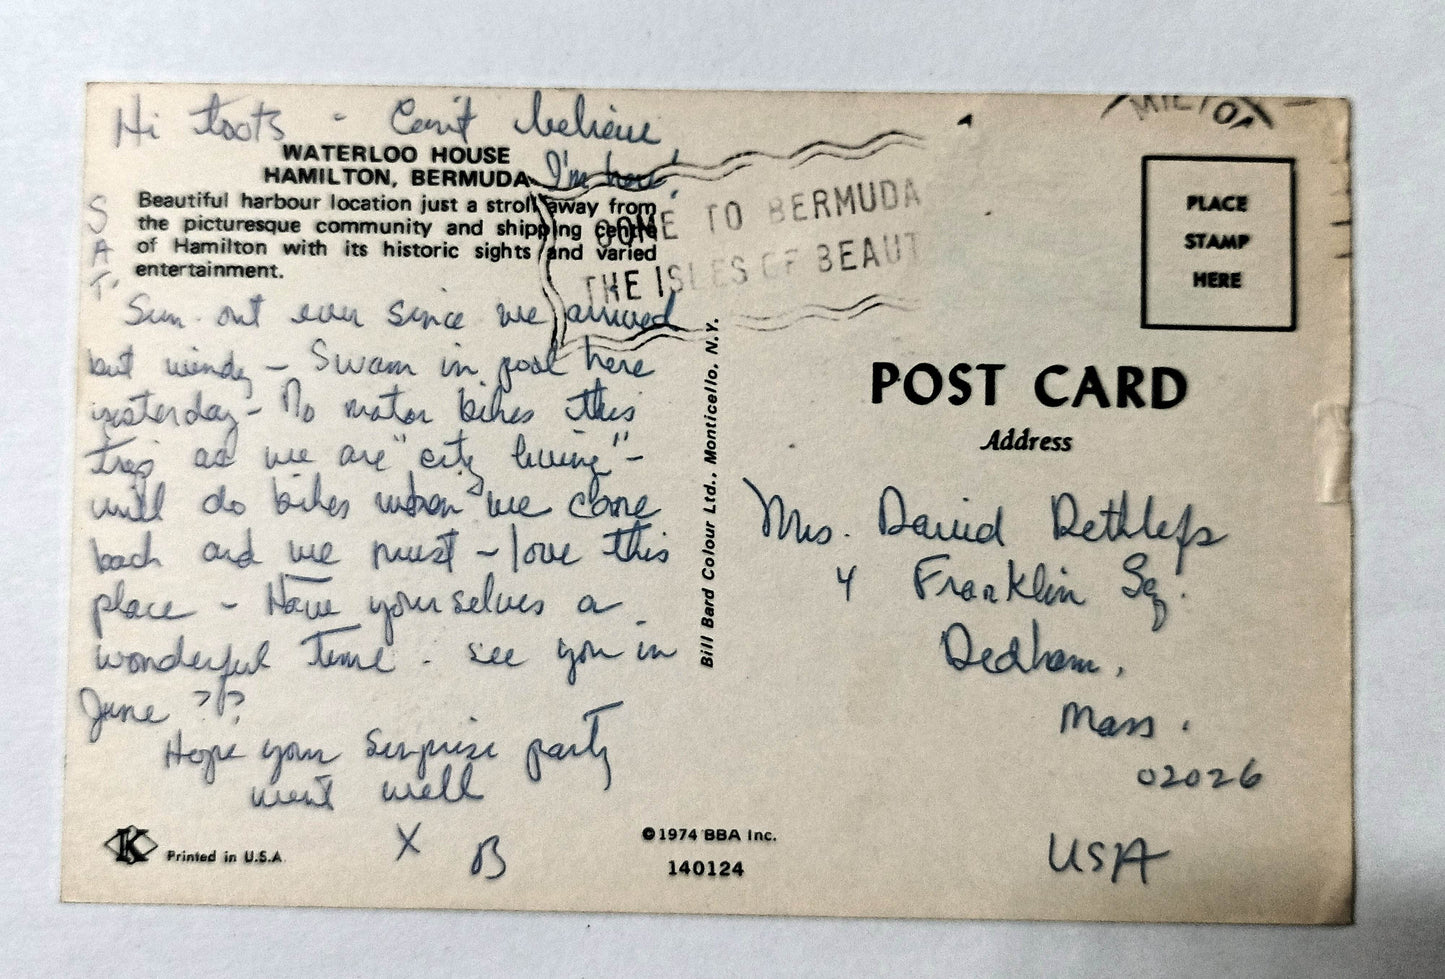 Hi toots - Can't believe
I'm here!
WATERLOO HOUSE
HAMILTON, BERMUDA
Beautiful harbour location just a stroll away from
the picturesque community and shipping centre
of Hamilton with its historic sights and varied
entertainment.
SAT.
Sun out ever since we arrived
but windy - Swam in pool here
yesterday - No motor bikes this
trip as we are "city living" -
will do bikes when we come
back and we must - love this
place - Have yourselves a
wonderful time. see you in
June ??
Hope your surprise party
went well
X B
K Printed in U.S.A.
©1974 BBA Inc.
140124
Bill Bard Colour Ltd., Monticello, N.Y.
COME TO BERMUDA
THE ISLES OF BEAUT
MILTON
PLACE
STAMP
HERE
POST CARD
Address
Mrs. David Dethlefs
4 Franklin Sq.
Dedham,
Mass.
02026
USA